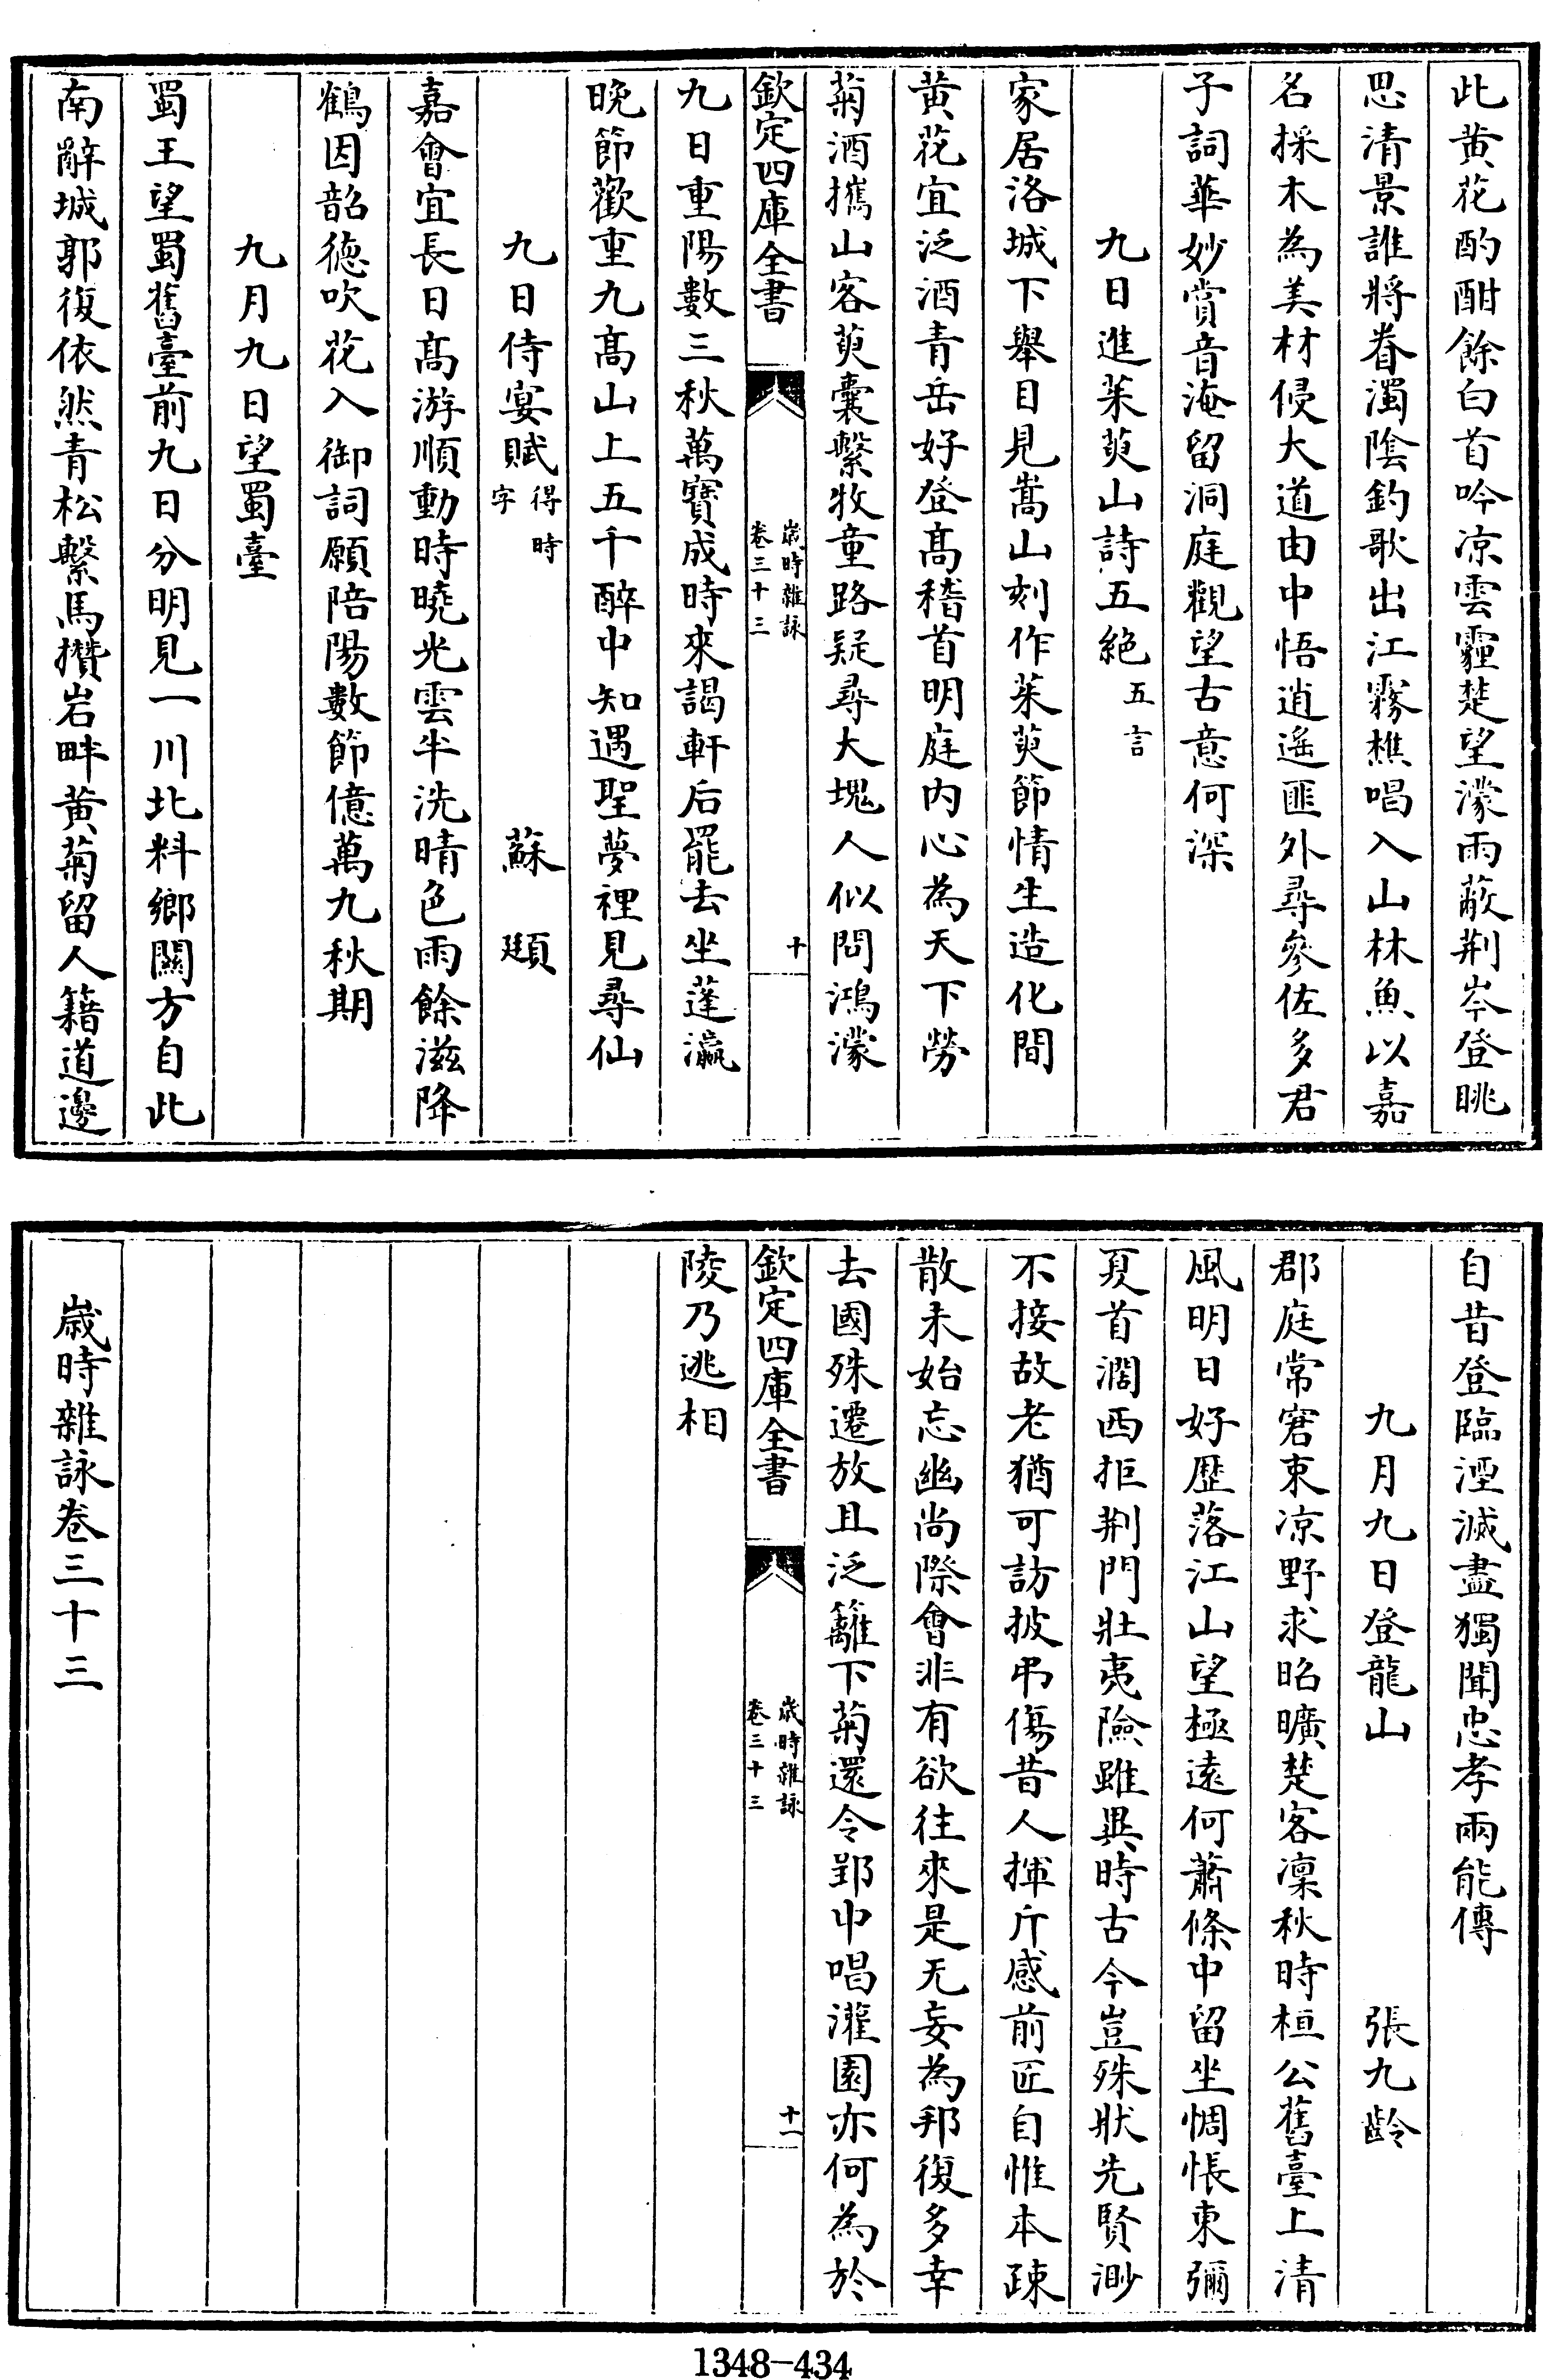 此黄花酌酣餘白首吟凉雲霾楚望濛雨蔽荆岑登眺
思清景誰將眷濁陰釣歌出江霧樵唱入山林魚以嘉
名採木為美材侵大道由中悟逍遥匪外尋參佐多君
子詞華妙賞音淹留洞庭觀望古意何深
九日進茱萸山詩五絶五言
家居洛城下舉目見嵩山刻作茱萸節情生造化間
黄花宜泛酒青岳好登髙稽首明庭内心為天下勞
菊酒攜山客萸囊繫牧童路疑尋大塊人似問鴻濛
欽定四庫全書
歳時雜詠
卷三十三
十
九日重陽數三秋萬寶成時來謁軒后罷去坐蓬瀛
晚節歡重九髙山上五千醉中知遇聖夢裡見尋仙
九日侍宴賦得時字 蘇頲
嘉會宜長日髙游順動時曉光雲半洗晴色雨餘滋降
鶴因韶徳吹花入御詞願陪陽數節億萬九秋期
九月九日望蜀臺
蜀王望蜀舊臺前九日分明見一川北料鄉關方自此
南辭城郭復依然青松繫馬攢岩畔黄菊留人籍道邊
自昔登臨湮滅盡獨聞忠孝兩能傳
九月九日登龍山 張九齡
郡庭常窘束凉野求昭曠楚客凜秋時桓公舊臺上清
風明日好歴落江山望極遠何蕭條中留坐惆悵東彌
夏首濶西拒荆門壯夷險雖異時古今豈殊狀先賢渺
不接故老猶可訪披弔傷昔人揮斤感前匠自惟本疎
散未始忘幽尚際會非有欲往來是无妄為邦復多幸
去國殊遷放且泛籬下菊還令郢中唱灌園亦何為於
欽定四庫全書
歳時雜詠
卷三十三
十一
陵乃逃相
歳時雜詠卷三十三
1348-434